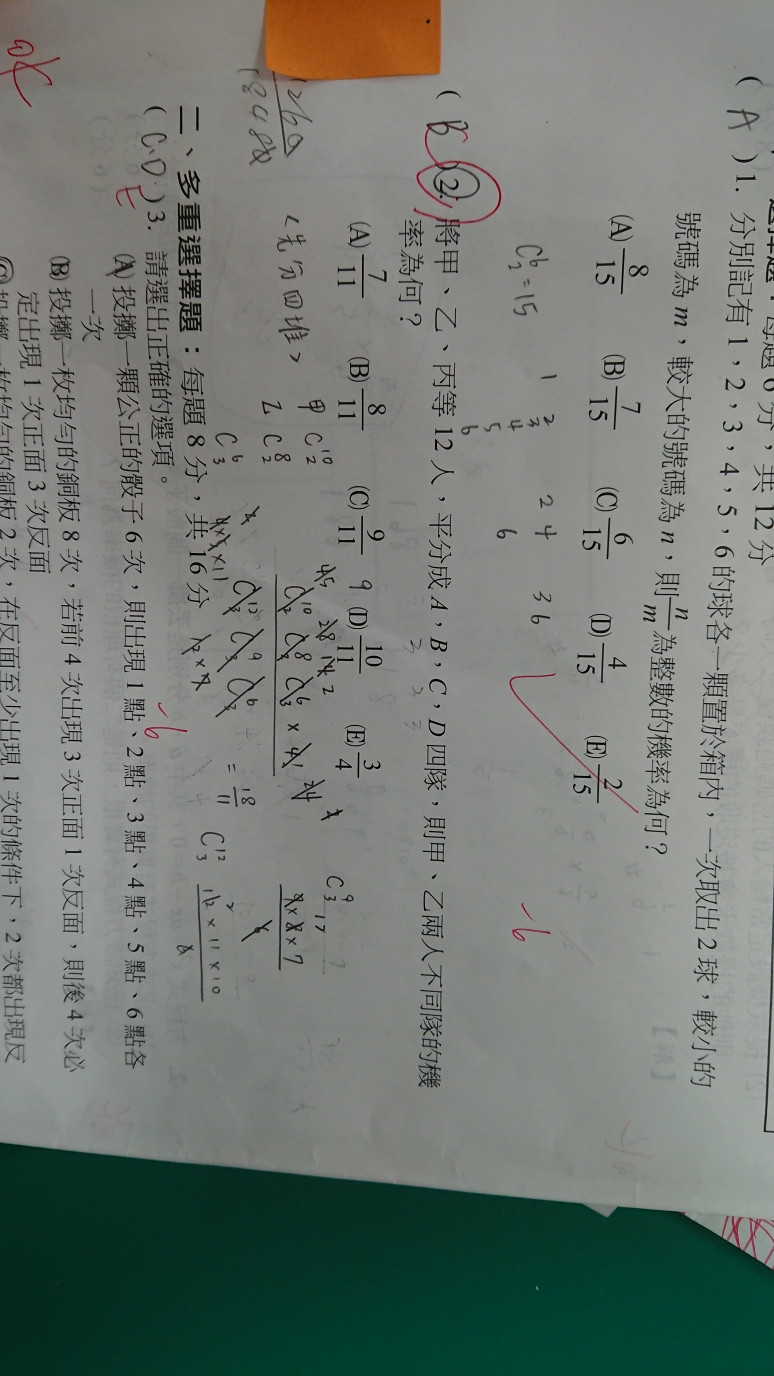 選擇題：每題 6 分，共 12 分
( A ) 1. 分別記有 1，2，3，4，5，6 的球各一顆置於箱內，一次取出 2 球，較小的
號碼為 m，較大的號碼為 n，則 n/m 為整數的機率為何？
(A) 8/15 (B) 7/15 (C) 6/15 (D) 4/15 (E) 2/15
C⁶₂ = 15
1 2 3 4 5 6
2 4 6
3 6
-6
( B ) 2. 將甲、乙、丙等 12 人，平分成 A，B，C，D 四隊，則甲、乙兩人不同隊的機
率為何？
(A) 7/11 (B) 8/11 (C) 9/11 (D) 10/11 (E) 3/4
<先分四堆>
甲 C¹⁰₂
乙 C⁸₂
C⁶₃
= 18/11
C⁹₃
9×8×7
C¹²₃
12×11×10
二、多重選擇題：每題 8 分，共 16 分
( C、D、E ) 3. 請選出正確的選項。
-6
(A) 投擲一顆公正的骰子 6 次，則出現 1 點、2 點、3 點、4 點、5 點、6 點各
一次
(B) 投擲一枚均勻的銅板 8 次，若前 4 次出現 3 次正面 1 次反面，則後 4 次必
定出現 1 次正面 3 次反面
(C) 投擲一枚均勻的銅板 2 次，在反面至少出現 1 次的條件下，2 次都出現反